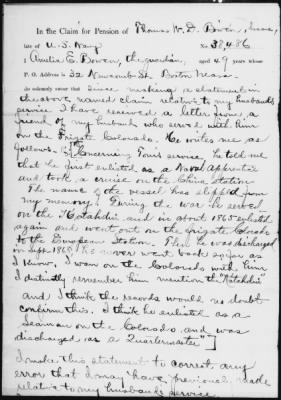 In the Claim for Pension of Thomas W. D. Bowen,
late of U.S. Navy No. 38486
I Amelia E. Bowen, the guardian, aged 49 years whose
P. O. Address is 32 Newcomb St. Boston Mass.
do solemnly swear that since making a statement in
the above named claim relative to my husband's
service I have received a letter from a
friend of my husband who served with him
on the Frigate Colorado. He writes me as
follows. Concerning Tom's service, he told me
that he first enlisted as a Naval Apprentice
and took a cruise on the China Station
The name of the vessel has slipped from
my memory. During the war he served
on the "Katahdin" and in about 1865 enlisted
again and went out on the frigate Colorado
to the European Station. Then he was discharged
in Sept. 1867. He never went back again as
I know, I was on the Colorado with him
I distinctly remember him mention the "Katahdin"
and I think the records would no doubt
confirm this. I think he enlisted as a
Seaman on the Colorado and was
discharged as a Quartermaster"]
I make this statement to correct any
error that I may have previously made
relative to my husband's service